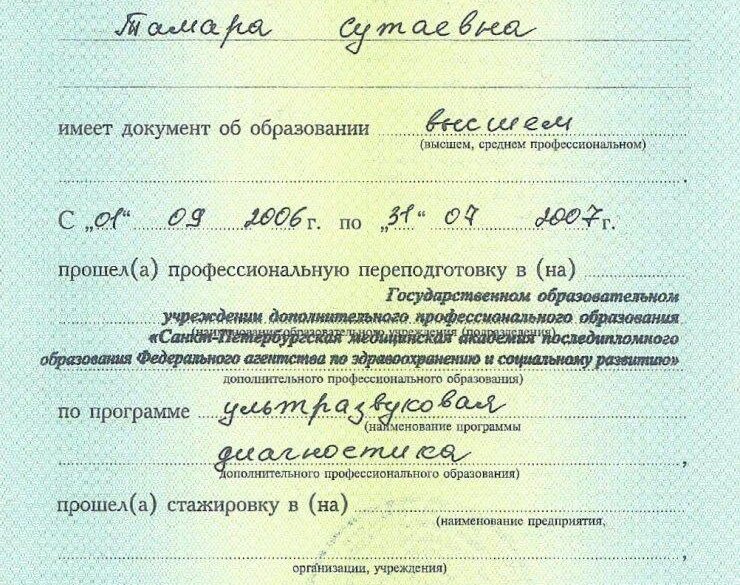 Тамара Сутаевна
имеет документ об образовании высшем
(высшем, среднем профессиональном)
С „01“ 09 2006 г. по „31“ 07 2007 г.
прошел(а) профессиональную переподготовку в (на)
Государственном образовательном
учреждении дополнительного профессионального образования
(наименование образовательного учреждения (подразделения)
«Санкт-Петербургская медицинская академия последипломного
образования Федерального агентства по здравоохранению и социальному развитию»
дополнительного профессионального образования)
по программе ультразвуковая
(наименование программы
диагностика,
дополнительного профессионального образования)
прошел(а) стажировку в (на)
(наименование предприятия,
организации, учреждения)